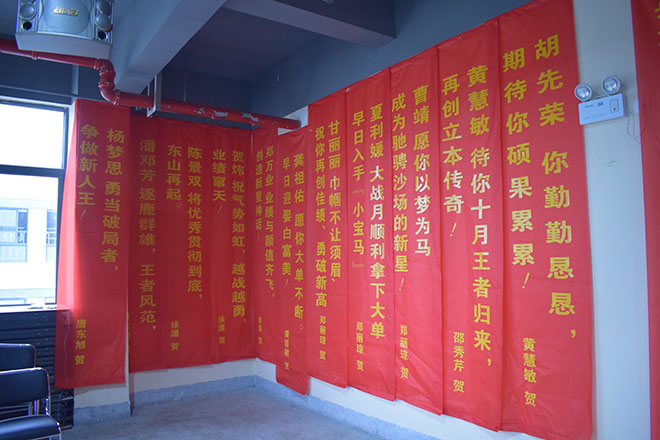 胡先荣 你勤勤恳恳，
期待你硕果累累！
黄慧敏 贺
黄慧敏 待你十月王者归来，
再创立本传奇！
邵秀芹 贺
曹靖 愿你以梦为马
成为驰骋沙场的新星！
郑丽琼 贺
夏利媛 大战月顺利拿下大单
早日入手『小宝马』
郑丽琼 贺
甘丽丽 巾帼不让须眉
祝你再创佳绩、勇破新高
郑丽琼 贺
龚祖佑 愿你大单不断。
早日迎娶白富美！
黄慧敏 贺
郑万业 业绩与颜值齐飞，
创造新星神话！
贺
贺炜 祝气势如虹，越战越勇，
业绩窜天！
徐源 贺
陈景双 将优秀贯彻到底，
东山再起。
徐源 贺
潘邓芳 逐鹿群雄 王者风范，
杨梦思 勇当破局者，
争做新人王！
唐东旭 贺